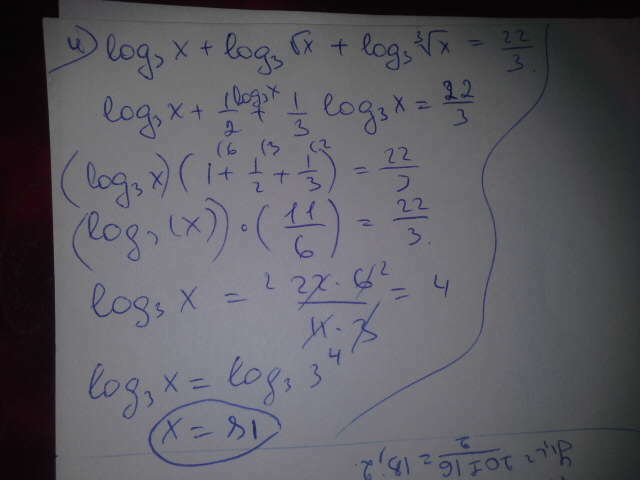 и) log₃ x + log₃ √x + log₃ ∛x = 22/3.
log₃ x + 1/2 log₃ x + 1/3 log₃ x = 22/3
(log₃ x)(1 + 1/2 + 1/3) = 22/3
(log₃ (x)) · (11/6) = 22/3.
log₃ x = 22 · 6 / 11 · 3 = 4
log₃ x = log₃ 3⁴
x = 81